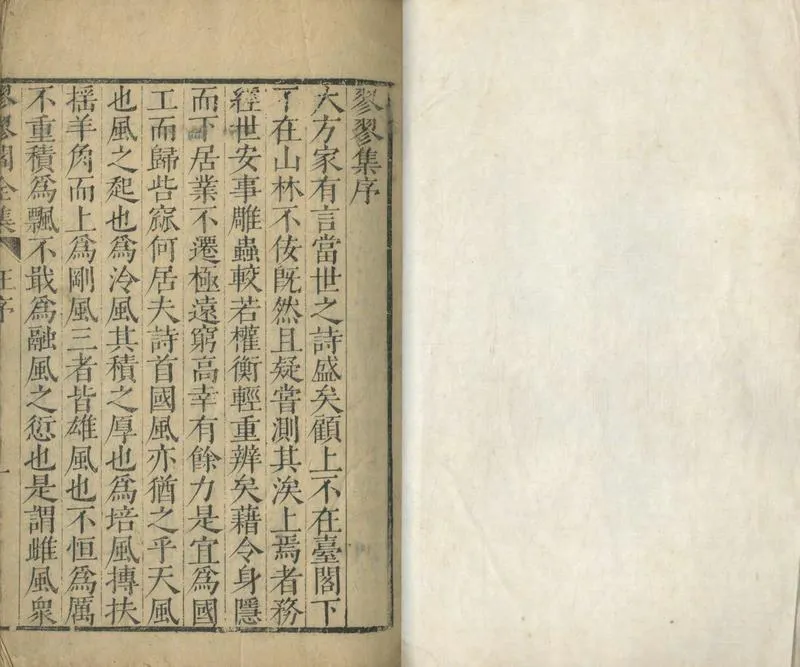 翏翏集序
大方家有言當世之詩盛矣顧上不在臺閣下
不在山林不佞旣然且疑嘗測其涘上焉者務
經世安事雕蟲較若權衡輕重辨矣藉令身隱
而下居業不遷極遠窮高幸有餘力是宜爲國
工而歸呰窳何居夫詩首國風亦猶之乎天風
也風之起也爲泠風其積之厚也爲培風摶扶
搖羊角而上爲剛風三者皆雄風也不恒爲厲
不重積爲飄不戢爲融風之愆也是謂雌風衆
翏翏閣全集 汪序 一